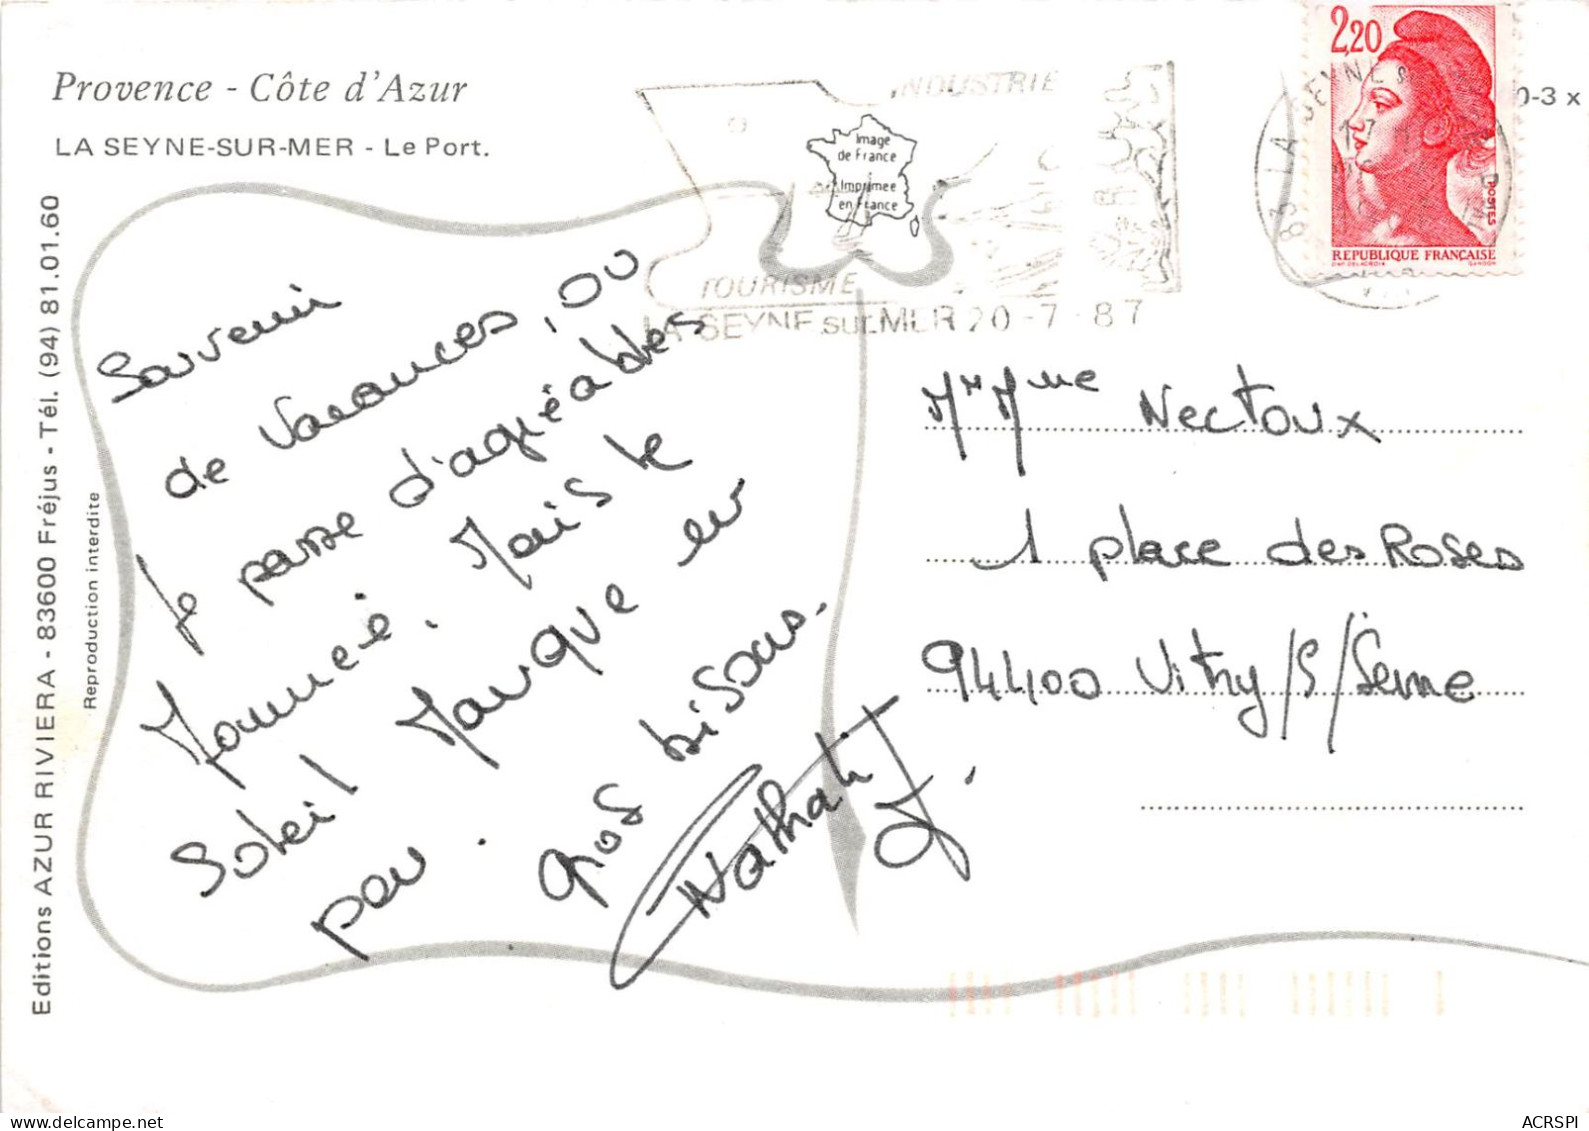 Provence - Côte d'Azur
LA SEYNE-SUR-MER - Le Port.
Editions AZUR RIVIERA - 83600 Fréjus - Tél. (94) 81.01.60
Reproduction interdite
Image
de France
Imprimée
en France
INDUSTRIE
TOURISME
LA SEYNE sur MER 20-7-87
83 LA SEYNE S
2,20
POSTES
REPUBLIQUE FRANÇAISE
0-3 x
Souvenir
de Vacances, ou
je passe d'agréables
Journée. Mais le
Soleil Manque un
peu.
gros bisous.
Nathalie
Mr Mme Nectoux
1 place des Roses
94400 Vitry/S/Seine
delcampe.net
ACRSPI